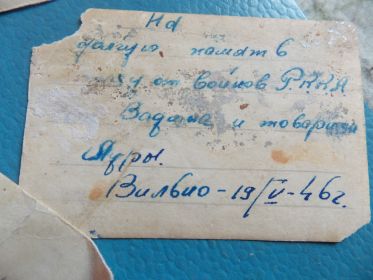 На
долгую память
от воинов Р.К.К.А
Вадима и товарищ
Яшры.
Вильно - 19/V-46г.